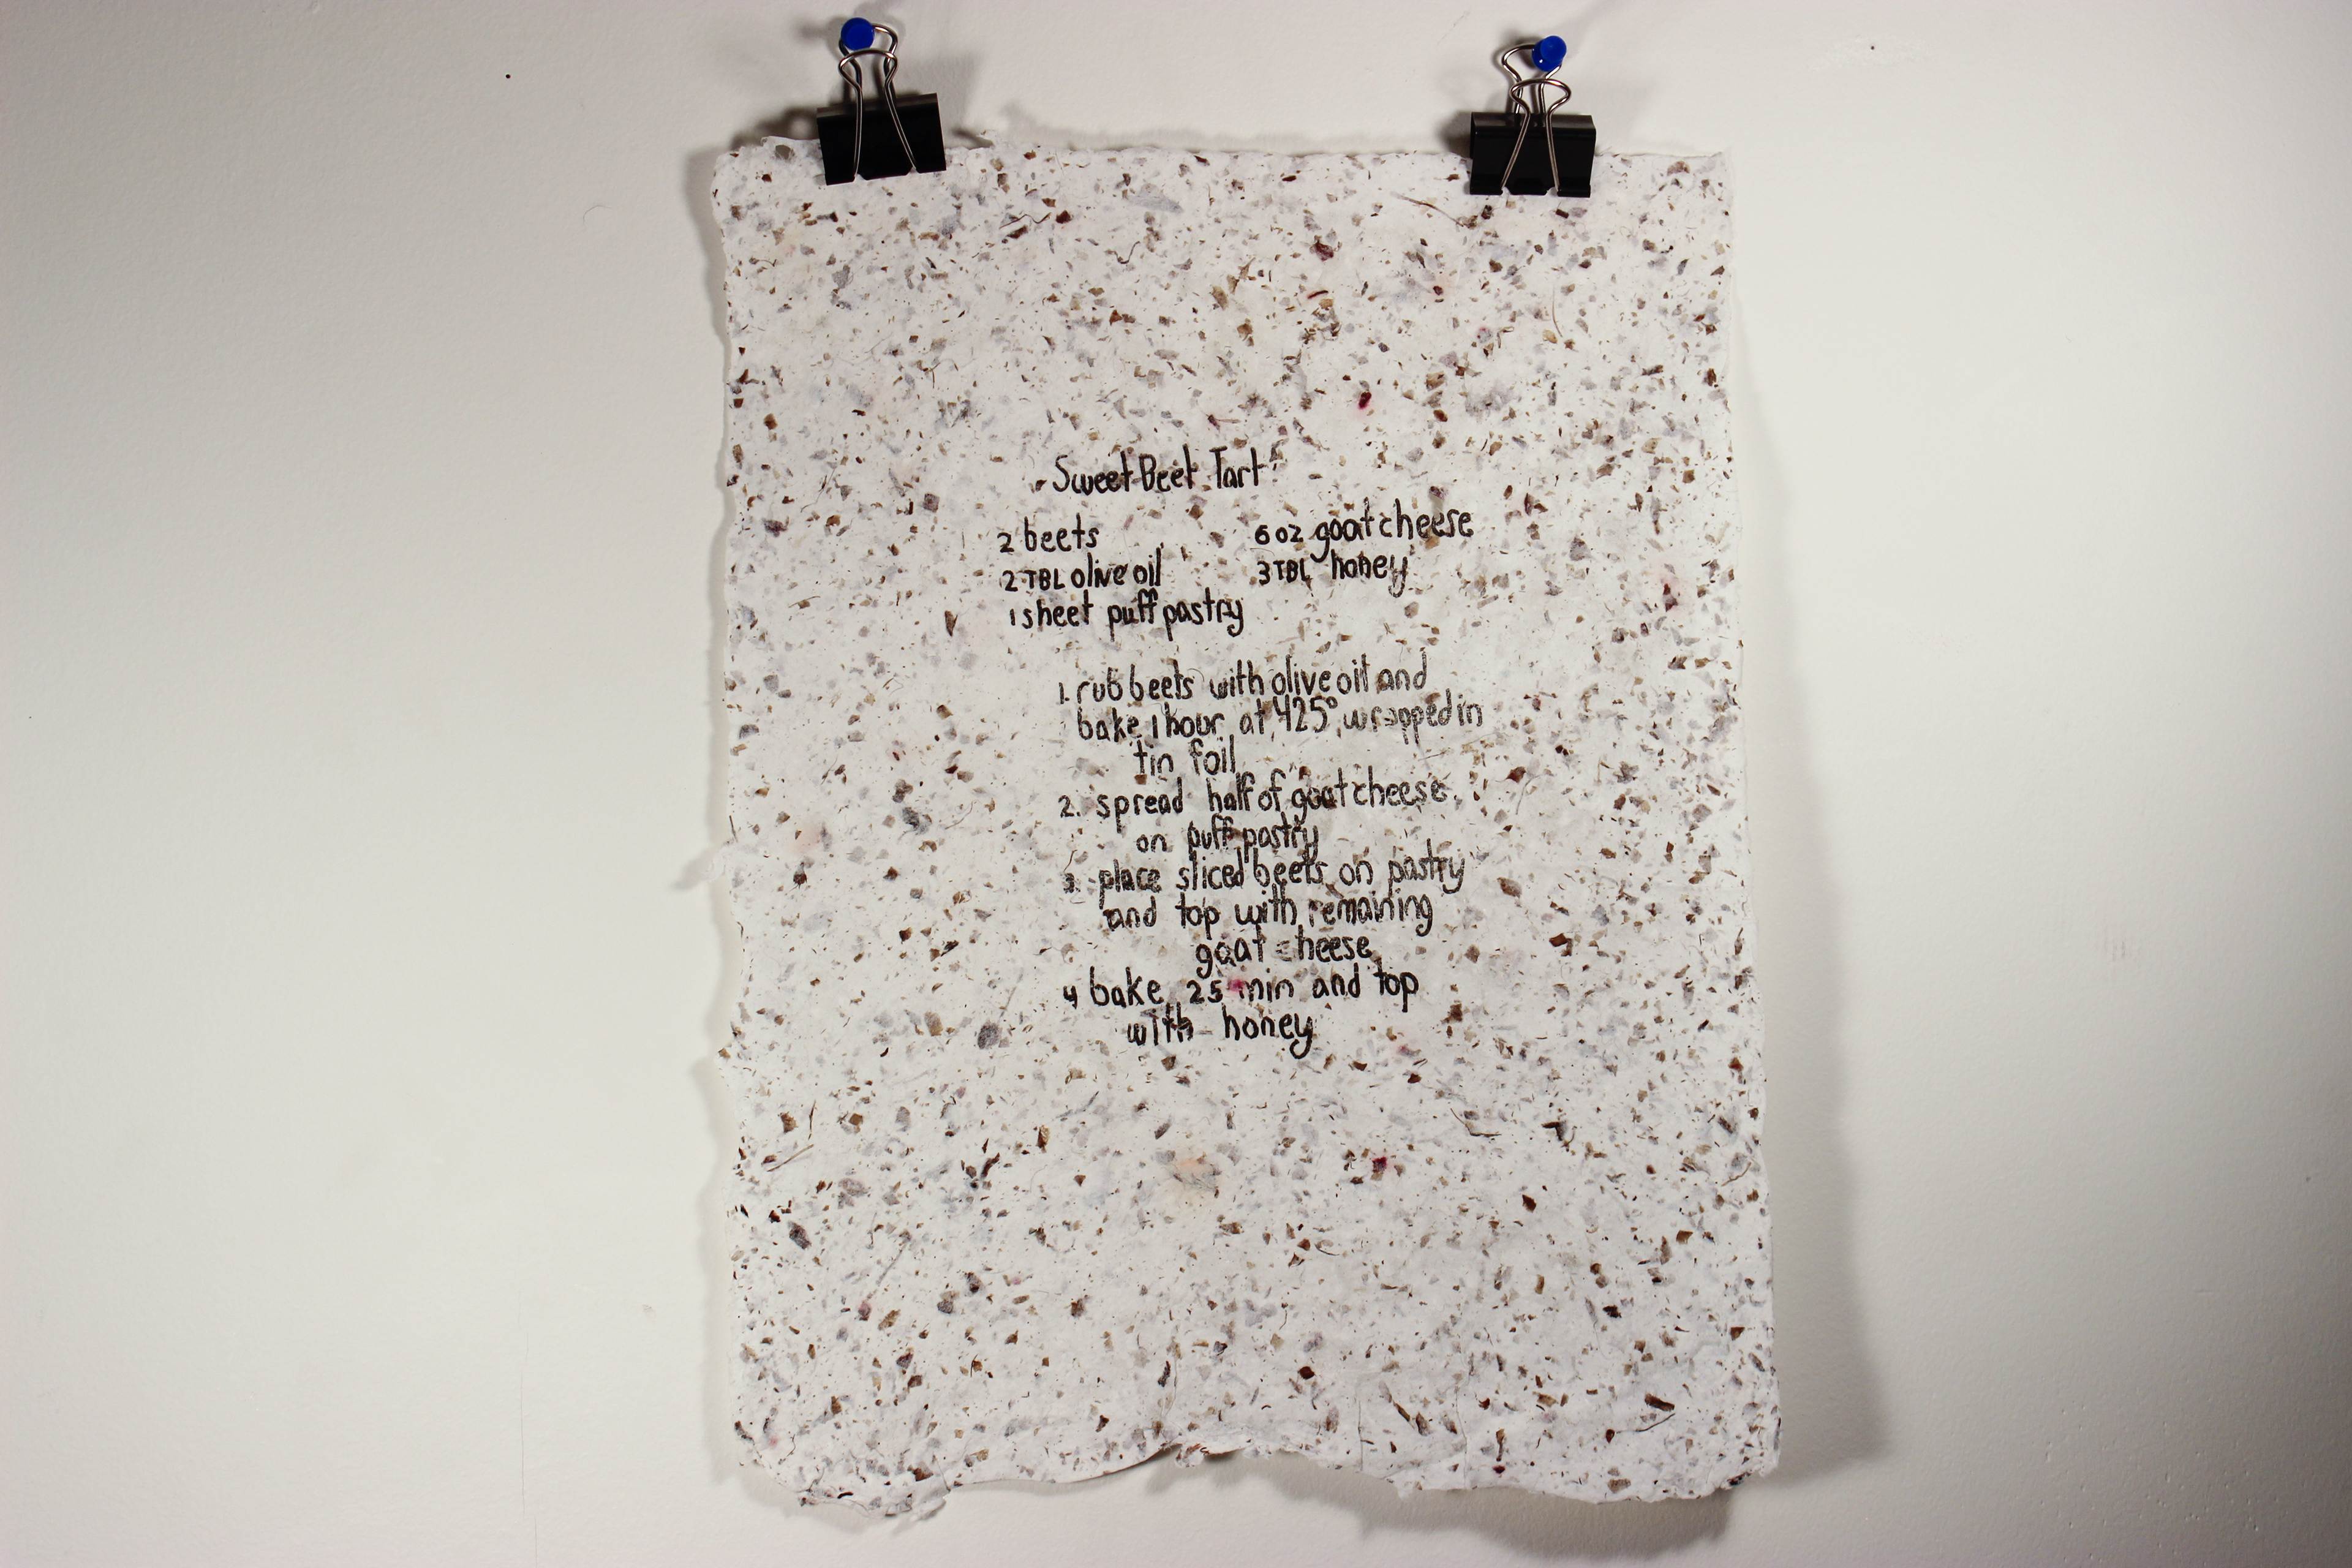 Sweet Beet Tart
2 beets
2 TBL olive oil
1 sheet puff pastry
6 oz goat cheese
3 TBL honey
1. rub beets with olive oil and
bake 1 hour at 425°, wrapped in
tin foil
2. spread half of goat cheese
on puff pastry
3. place sliced beets on pastry
and top with remaining
goat cheese
4 bake 25 min and top
with honey